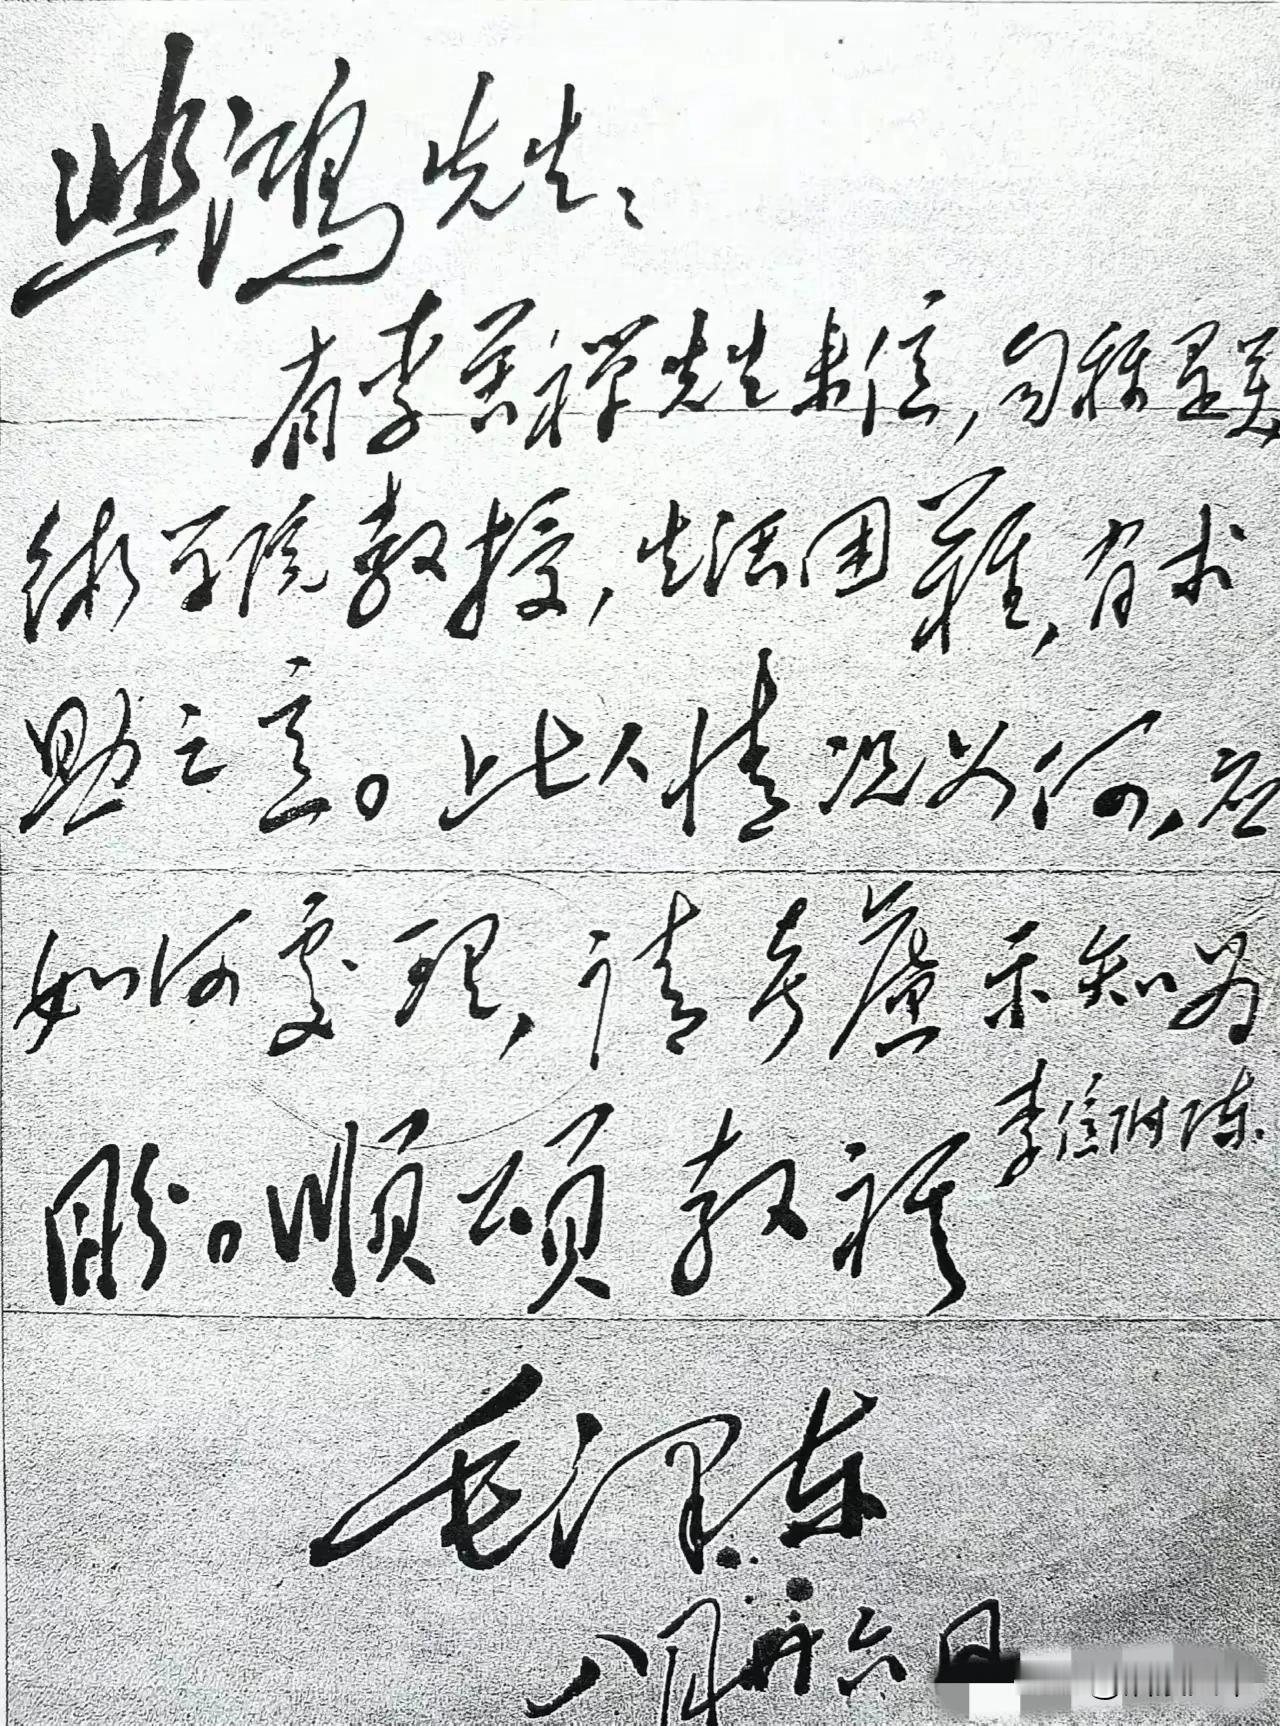 悲鸿先生：
有李苦禅先生来信，自称是美
術学院教授，生活困難，有求
助之意。此人情况如何，应
如何處理，请考慮示知为
盼。顺颂教祺
李信附陈。
毛泽东
八月廿六日